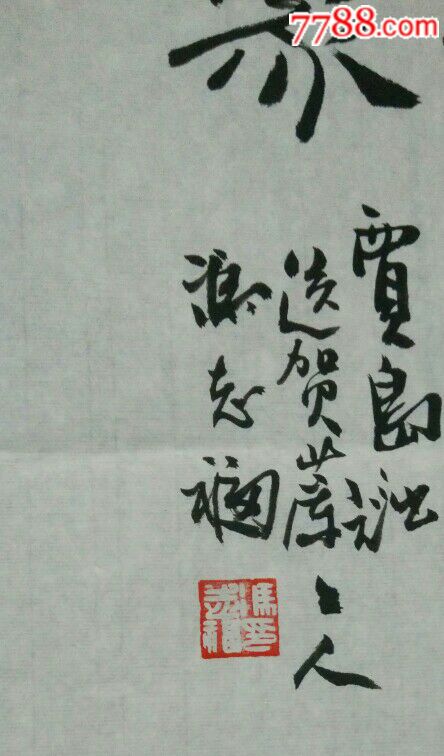 7788.com
賈島詩
送賀蘭上人
馮志福
馮印志福